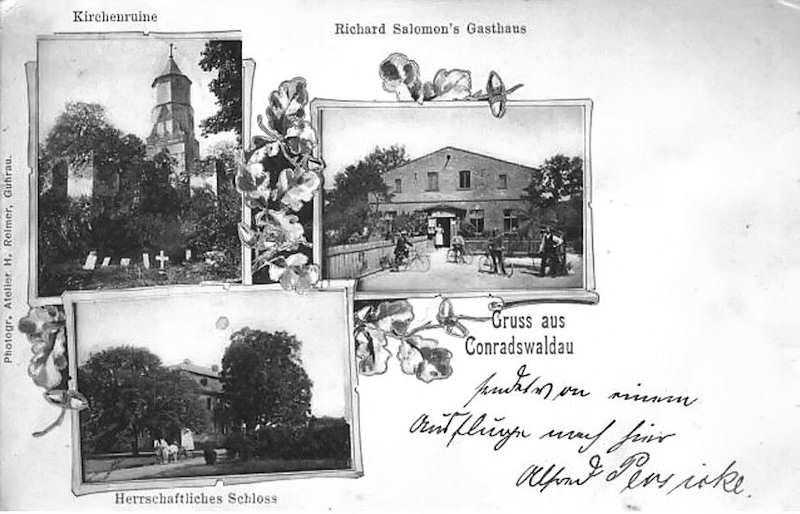 Kirchenruine
Richard Salomon's Gasthaus
Photogr. Atelier H. Reimer, Guhrau.
Gruss aus
Conradswaldau
sendet von einem
Ausfluge nach hier
Alfred Persicke.
Herrschaftliches Schloss